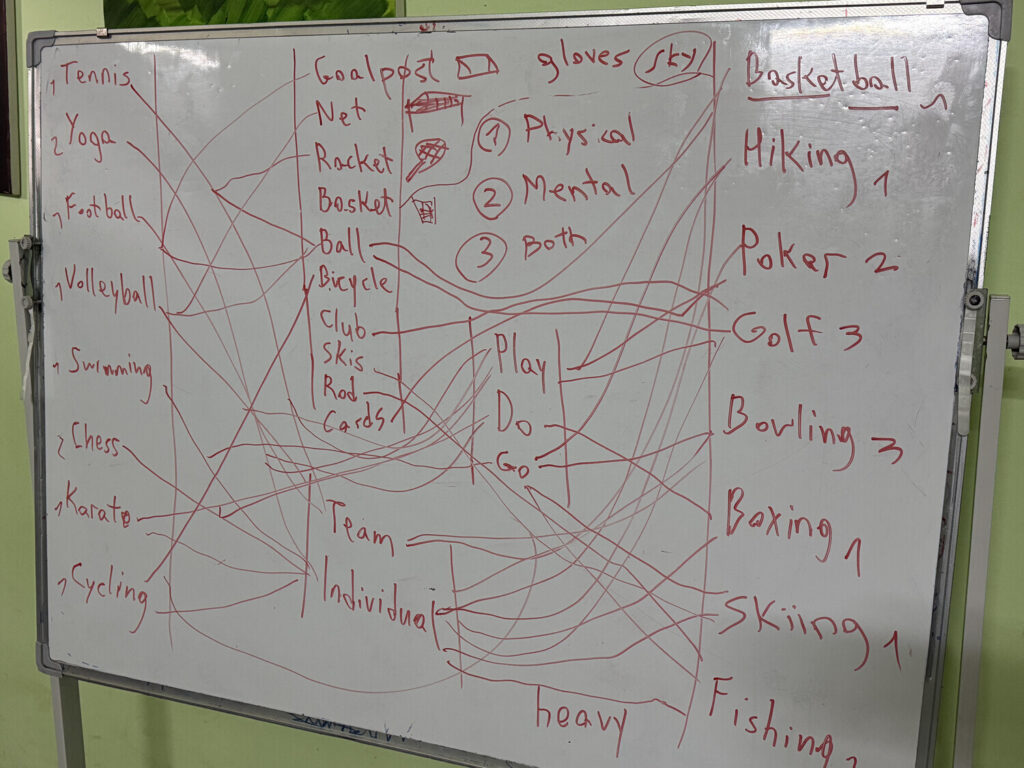 1 Tennis
2 Yoga
1 Football
1 Volleyball
1 Swimming
2 Chess
1 Karate
1 Cycling
Goalpost
Net
Racket
Basket
Ball
Bicycle
Club
Skis
Rod
Cards
Team
Individual
gloves sky
1 Physical
2 Mental
3 Both
Play
Do
Go
heavy
Basketball
Hiking 1
Poker 2
Golf 3
Bowling 3
Boxing 1
Skiing 1
Fishing